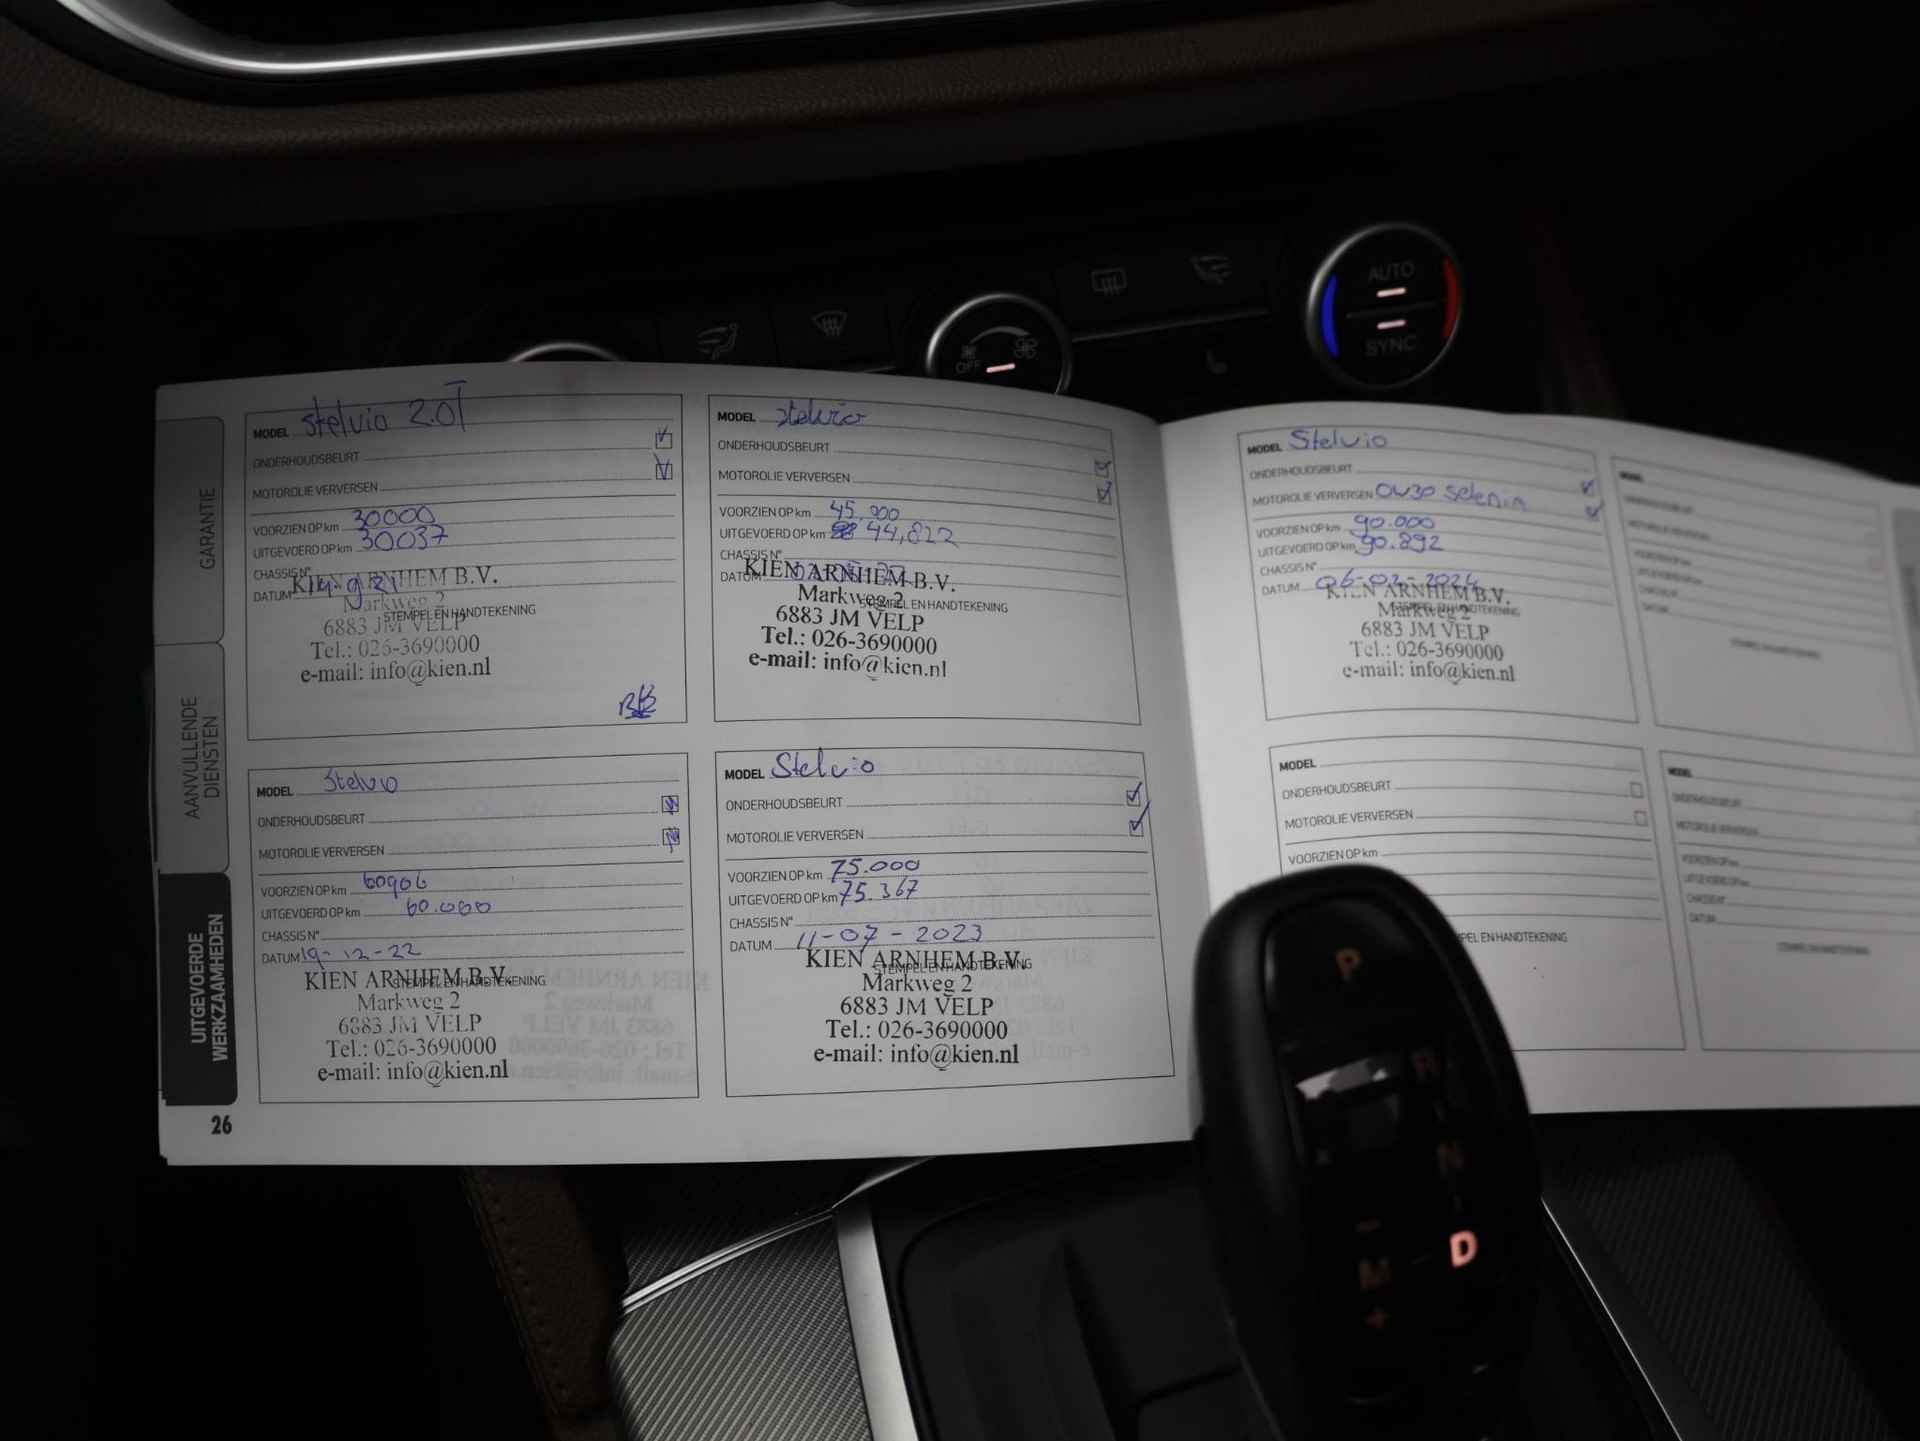 AUTO
SYNC
OFF
GARANTIE
AANVULLENDE
DIENSTEN
UITGEVOERDE
WERKZAAMHEDEN
MODEL Stelvio 2.0T
ONDERHOUDSBEURT
MOTOROLIE VERVERSEN
VOORZIEN OP km 30000
UITGEVOERD OP km 30037
CHASSIS N°
DATUM
STEMPEL EN HANDTEKENING
KIEN ARNHEM B.V.
Markweg 2
6883 JM VELP
Tel.: 026-3690000
e-mail: info@kien.nl
MODEL Stelvio
ONDERHOUDSBEURT
MOTOROLIE VERVERSEN
VOORZIEN OP km 45.000
UITGEVOERD OP km 44,822
CHASSIS N°
DATUM
STEMPEL EN HANDTEKENING
KIEN ARNHEM B.V.
Markweg 2
6883 JM VELP
Tel.: 026-3690000
e-mail: info@kien.nl
MODEL Stelvio
ONDERHOUDSBEURT
MOTOROLIE VERVERSEN
VOORZIEN OP km 60906
UITGEVOERD OP km 60.000
CHASSIS N°
DATUM 19-12-22
STEMPEL EN HANDTEKENING
KIEN ARNHEM B.V.
Markweg 2
6883 JM VELP
Tel.: 026-3690000
e-mail: info@kien.nl
MODEL Stelvio
ONDERHOUDSBEURT
MOTOROLIE VERVERSEN
VOORZIEN OP km 75.000
UITGEVOERD OP km 75.367
CHASSIS N°
DATUM 11-07-2023
STEMPEL EN HANDTEKENING
KIEN ARNHEM B.V.
Markweg 2
6883 JM VELP
Tel.: 026-3690000
e-mail: info@kien.nl
26
MODEL Stelvio
ONDERHOUDSBEURT
MOTOROLIE VERVERSEN 0W30 Selenin
VOORZIEN OP km 90.000
UITGEVOERD OP km 90.892
CHASSIS N°
DATUM 06-02-2024
STEMPEL EN HANDTEKENING
KIEN ARNHEM B.V.
Markweg 2
6883 JM VELP
Tel.: 026-3690000
e-mail: info@kien.nl
MODEL
ONDERHOUDSBEURT
MOTOROLIE VERVERSEN
VOORZIEN OP km
EN HANDTEKENING
P
R
N
D
M
+